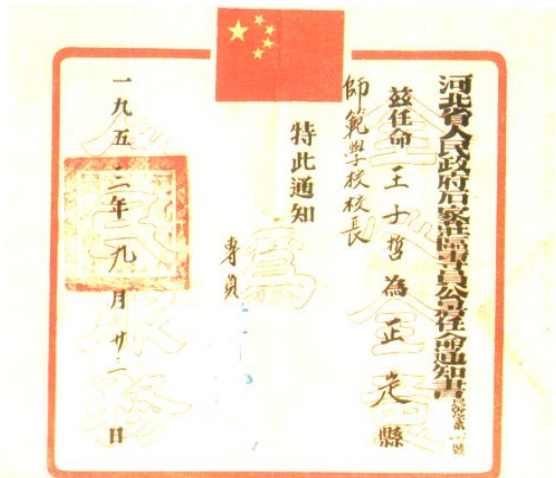 河北省人民政府石家莊區專員公署任命通知書
茲任命王子哲為正定縣
師範學校校長
特此通知
專員
一九五二年九月廿二日
全心全意
為
人民服務